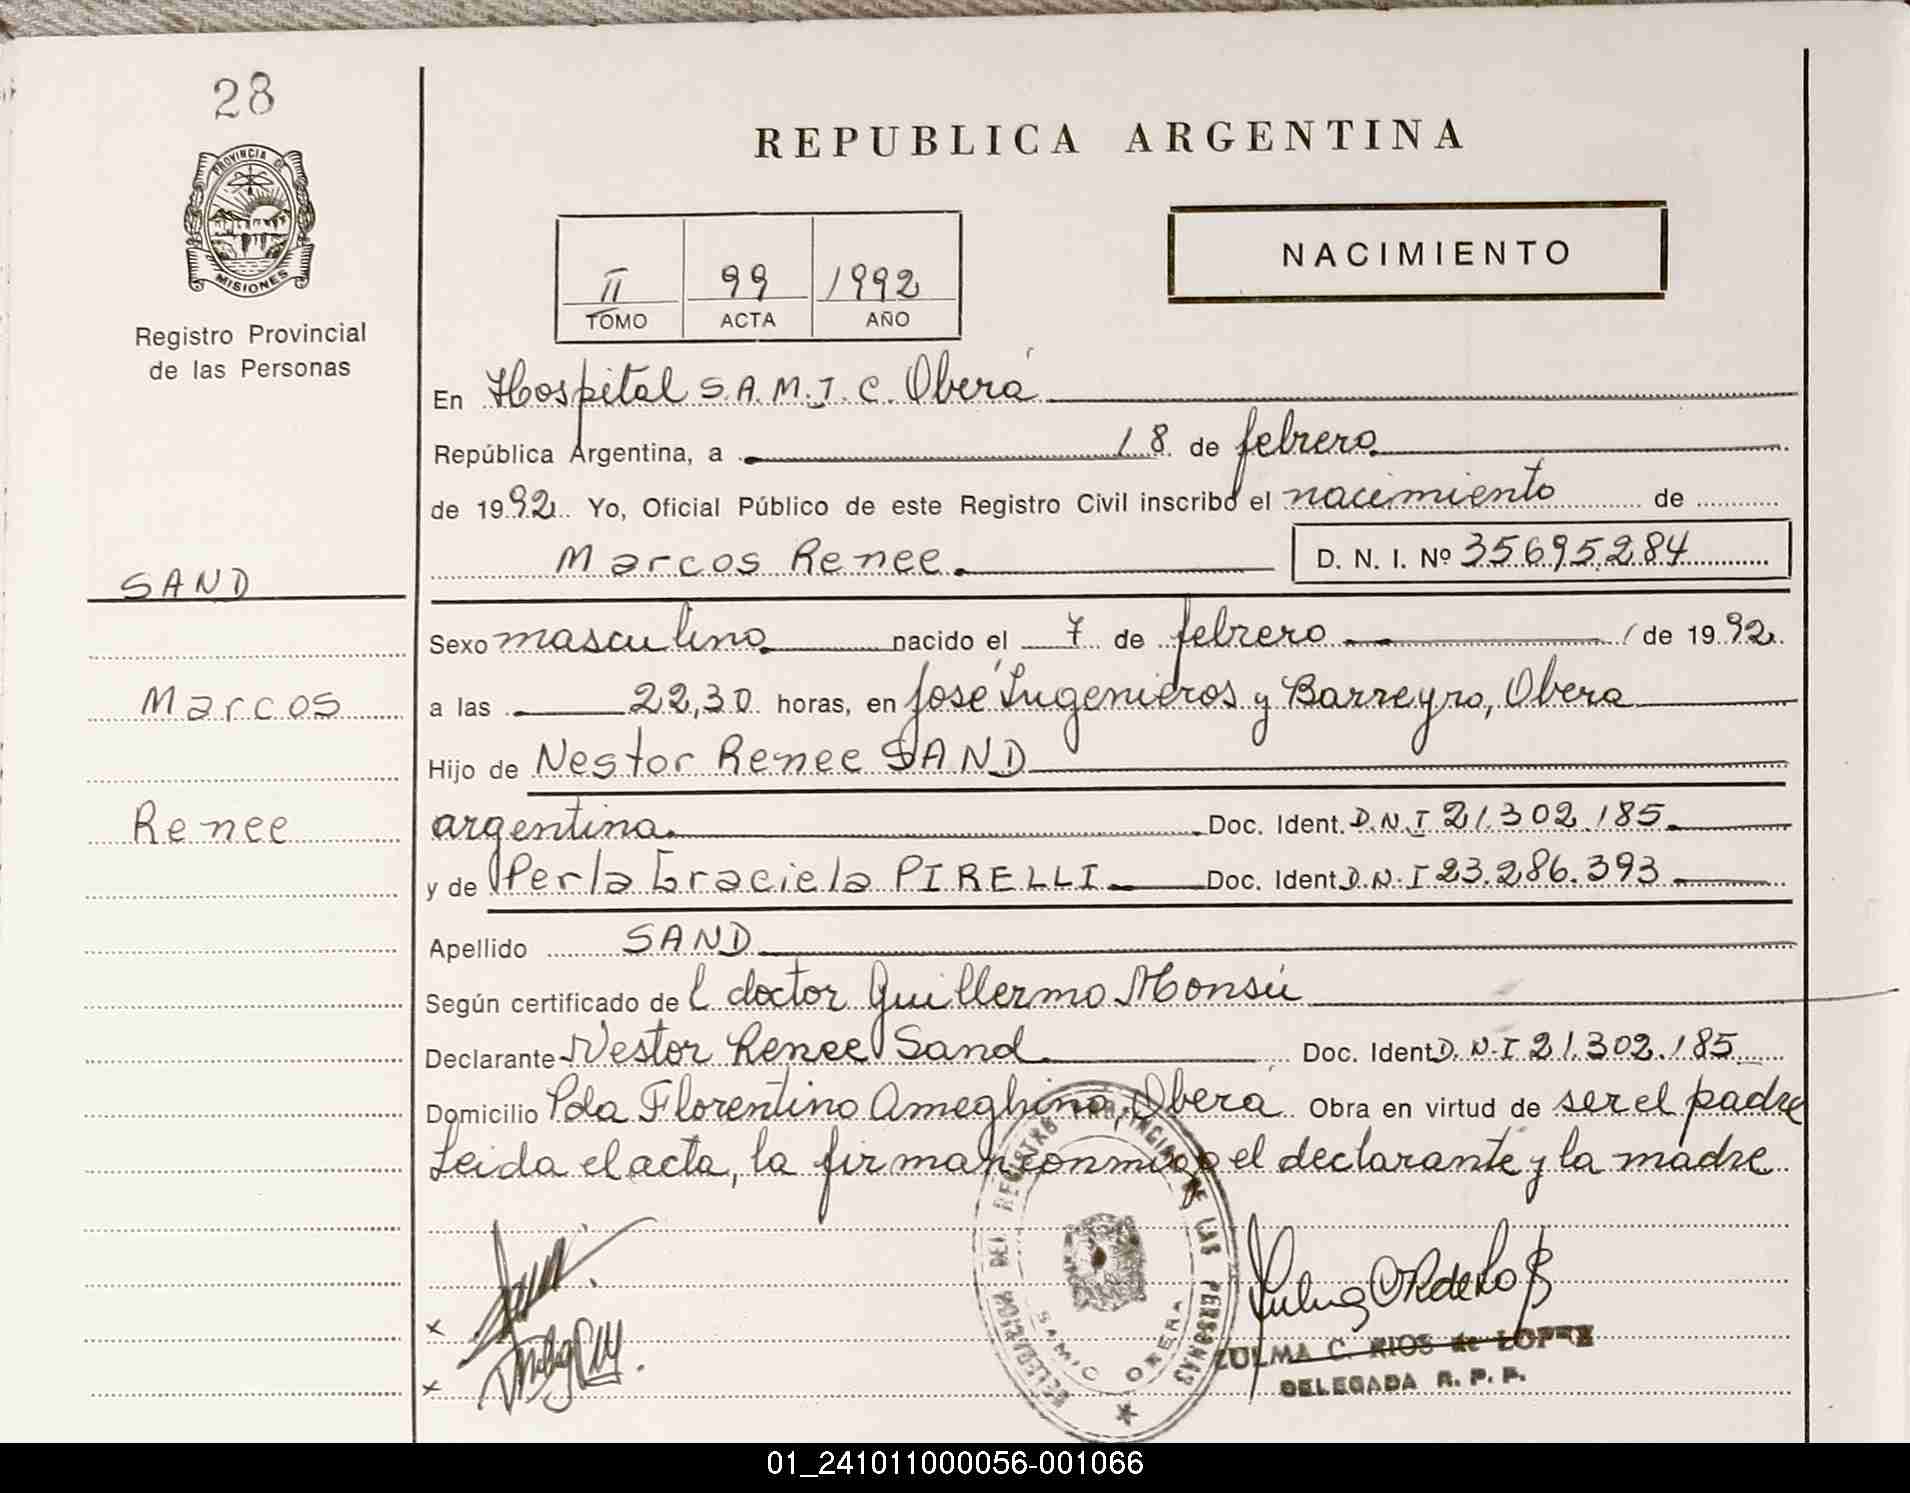 28
PROVINCIA DE
MISIONES
Registro Provincial
de las Personas
REPUBLICA ARGENTINA
NACIMIENTO
II 99 1992
TOMO ACTA AÑO
En Hospital S.A.M.I.C. Oberá
República Argentina, a 18 de febrero
de 1992 Yo, Oficial Público de este Registro Civil inscribo el nacimiento de
Marcos Renee. D. N. I. Nº 35695284
SAND
Sexo masculino nacido el 7 de febrero de 1992
a las 22,30 horas, en José Ingenieros y Barreyro, Obera
Marcos
Hijo de Nestor Renee SAND
Renee
argentina. Doc. Ident. D.N.I 21.302.185.
y de Perla Graciela PIRELLI Doc. Ident. D.N.I 23.286.393
Apellido SAND
Según certificado de l doctor Guillermo Monsú
Declarante Nestor Renee Sand Doc. Ident. D.N.I 21.302.185
Domicilio Pda Florentino Ameghino, Oberá Obra en virtud de ser el padre
Leida el acta, la firman conmigo el declarante y la madre
DELEGACION DEL REGISTRO PROVINCIAL DE LAS PERSONAS
SAMIC OBERA
x
x
ZULMA C. RIOS de LOPEZ
DELEGADA R. P. P.
01_241011000056-001066